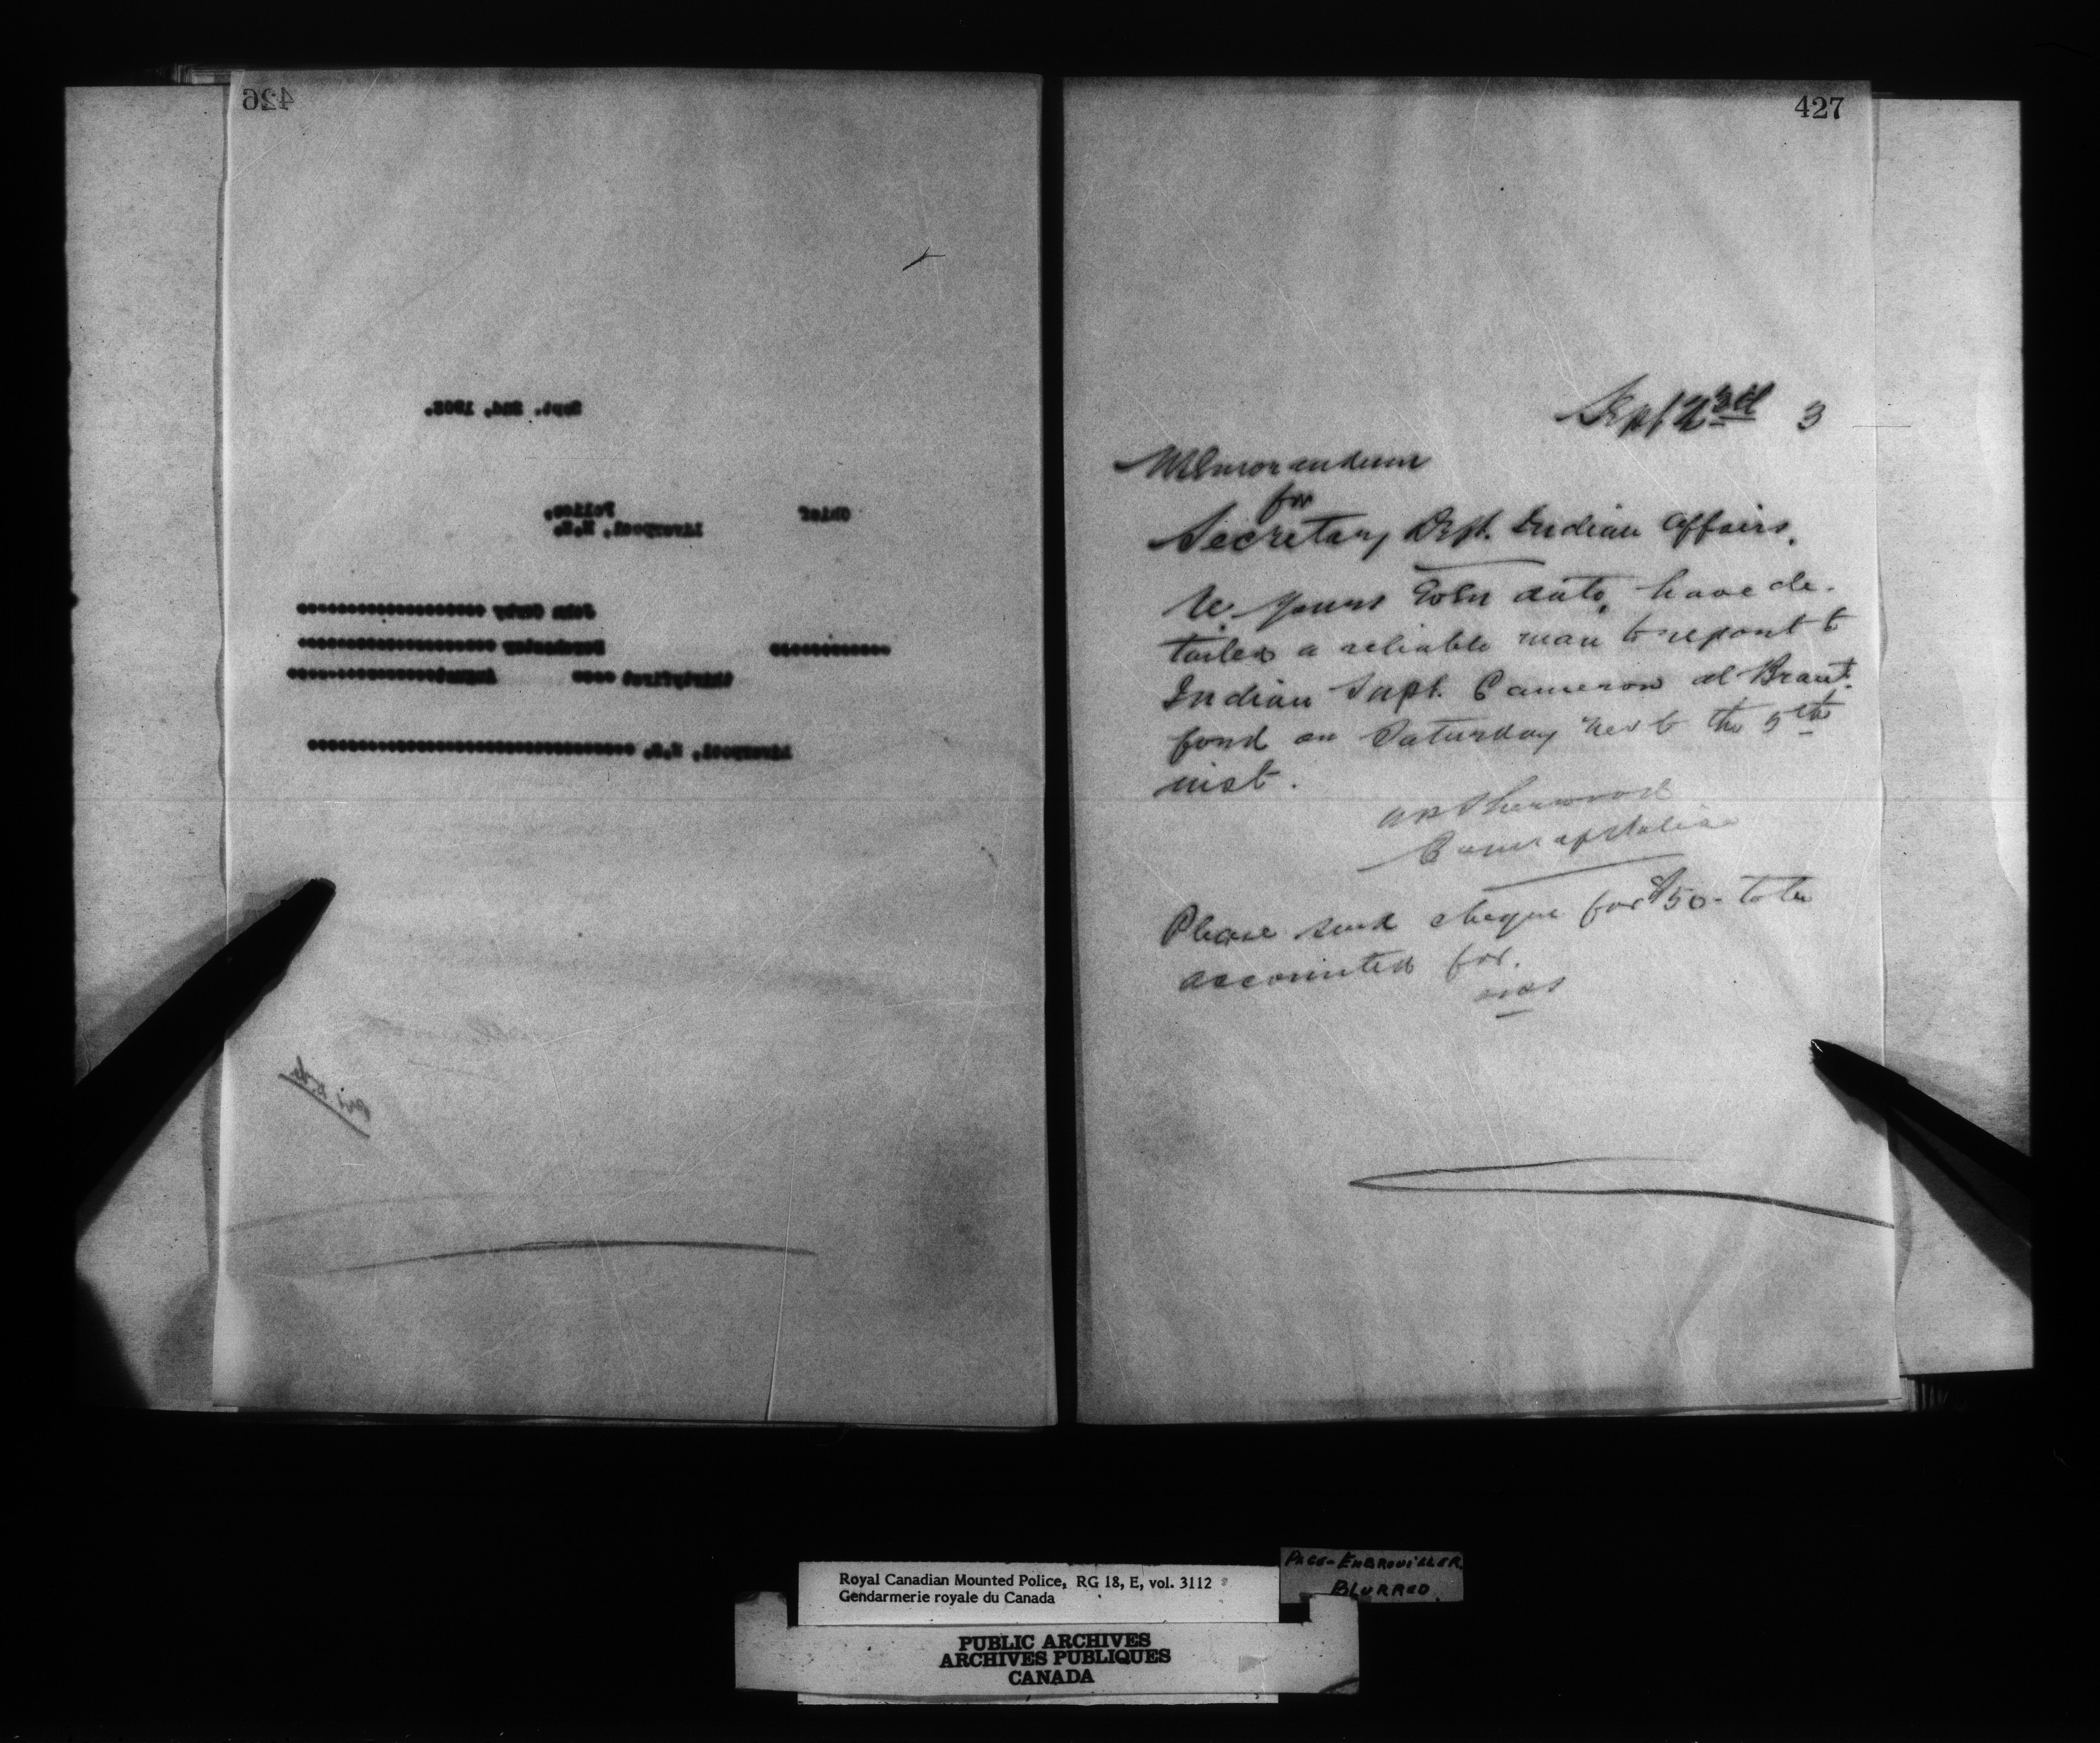 426
Sept. 2nd, 1903.
Chief Police,
Liverpool, N.S.
John
thirtyfirst August
Liverpool, N.S.
427
Sept 3rd 3
Memorandum
for
Secretary Dept. Indian Affairs.
Re yours even date, have de-
tailed a reliable man to report to
Indian Supt. Cameron at Brant-
ford on Saturday next the 5th
inst.
AP Sherwood
Comr of Police
Please send cheque for $50- to be
accounted for.
APS
Royal Canadian Mounted Police, RG 18, E, vol. 3112
Gendarmerie royale du Canada
PAGE-EMBROUILLER
BLURRED
PUBLIC ARCHIVES
ARCHIVES PUBLIQUES
CANADA